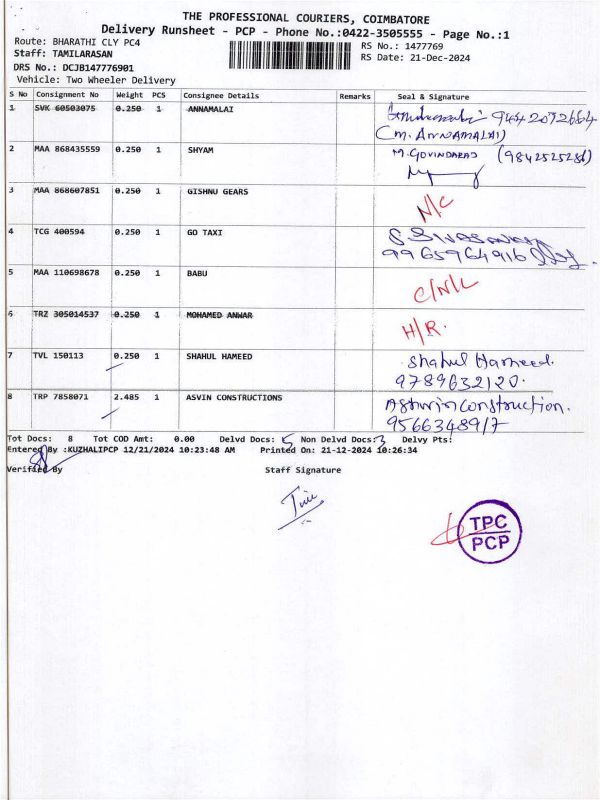 THE PROFESSIONAL COURIERS, COIMBATORE
Delivery Runsheet - PCP - Phone No.:0422-3505555 - Page No.:1
Route: BHARATHI CLY PC4
RS No.: 1477769
Staff: TAMILARASAN
RS Date: 21-Dec-2024
DRS No.: DCJB147776901
Vehicle: Two Wheeler Delivery
S No Consignment No Weight PCS Consignee Details Remarks Seal & Signature
1 SVK 60503075 0.250 1 ANNAMALAI 9442092664
(M. ANNAMALAI)
2 MAA 868435559 0.250 1 SHYAM M. GOVINDARAJ (9842525286)
3 MAA 868607851 0.250 1 GISHNU GEARS N/C
4 TCG 400594 0.250 1 GO TAXI
9965964916
5 MAA 110698678 0.250 1 BABU C/N/L
6 TRZ 305014537 0.250 1 MOHAMED ANWAR H/R.
7 TVL 150113 0.250 1 SHAHUL HAMEED Shahul Hameed.
9789632120.
8 TRP 7858071 2.485 1 ASVIN CONSTRUCTIONS Ashwin Construction.
95663489/7
Tot Docs: 8 Tot COD Amt: 0.00 Delvd Docs: 5 Non Delvd Docs: 3 Delvy Pts:
Entered By :KUZHALIPCP 12/21/2024 10:23:48 AM Printed On: 21-12-2024 10:26:34
Verified By Staff Signature
TPC
PCP